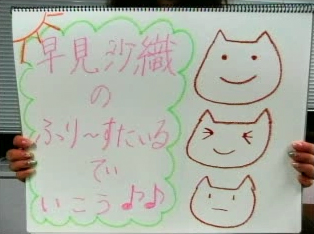 早見沙織
の
ふり～すたいる
でい
いこう♪♪